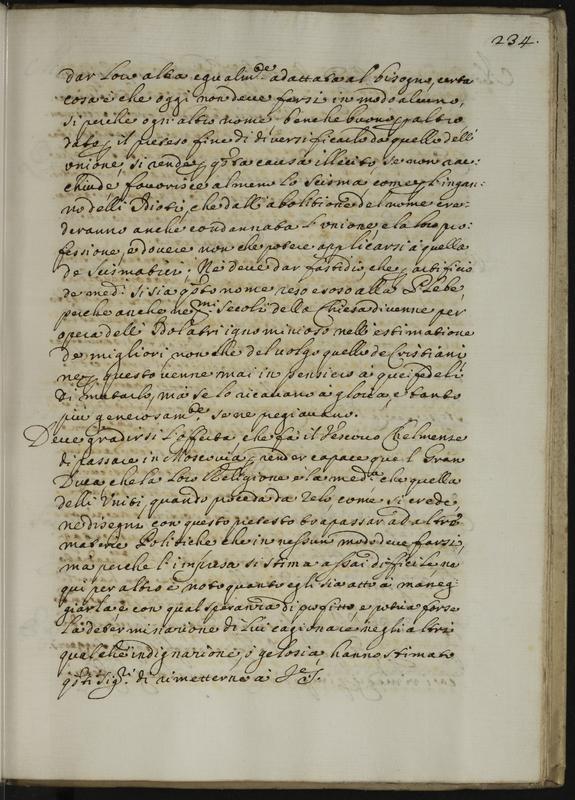 234.
dar loro altra egualm.te adattata al bisogno, certa
cosa è che oggi non deve farsi in modo alcuno,
si perche ogni altro nome benche buono p altro
dato p il preteso fine di diversificarlo da quello dell'
unione, si rende p q.sta causa illecito, se non rac:
chiude, favorisce almeno lo Scisma come p l'ingan:
no delli Idioti, che dall'abolitione del nome cre:
deranno anche condannata l'unione e la loro pro:
fessione, e dovere non che potere applicarsi à quella
de Scismatici. Ne deve dar fastidio che p artificio
de med.i si sia q.sto nome reso esoso alla Plebe,
perche anche ne p.mi Secoli della Chiesa divenne per
opera delli Idolatri ignominioso nell'estimatione
de migliori, non che del volgo quello de Cristiani,
ne p questo venne mai in pensiero à quei fedeli
di mutarlo, mà se lo recavano a gloria, e tanto
più generosam.te se ne pregiavano.
Deve gradirsi l'offerta che fà il Vescovo Chelmense
di passare in Moscovia p render capace quel Gran
Duca che la loro Religione è la med.a che quella
delli Uniti, quando proceda da zelo, come si crede,
ne disegni con questo pretesto trapassar ad altre
materie Politiche che in nessun modo deve farsi,
mà perche l'impresa si stima assai difficile ne
qui per altro è noto quanto egli sia atto à maneg:
giarla, e con qual speranza di profitto, e potria forse
la determinazione di lui cagionare negli altri
qualche indignazione, ò gelosia, hanno stimato
q.sti Sig.ri di rimetterne à